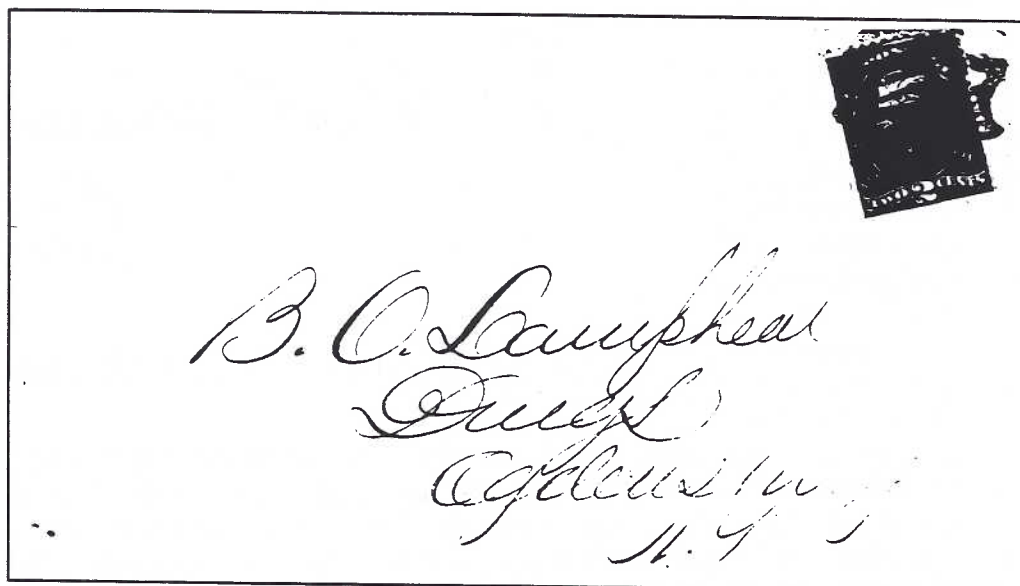 TWO 2 CENTS
B. O. Lamphear
Drugs
Ogdensburg
N. Y.